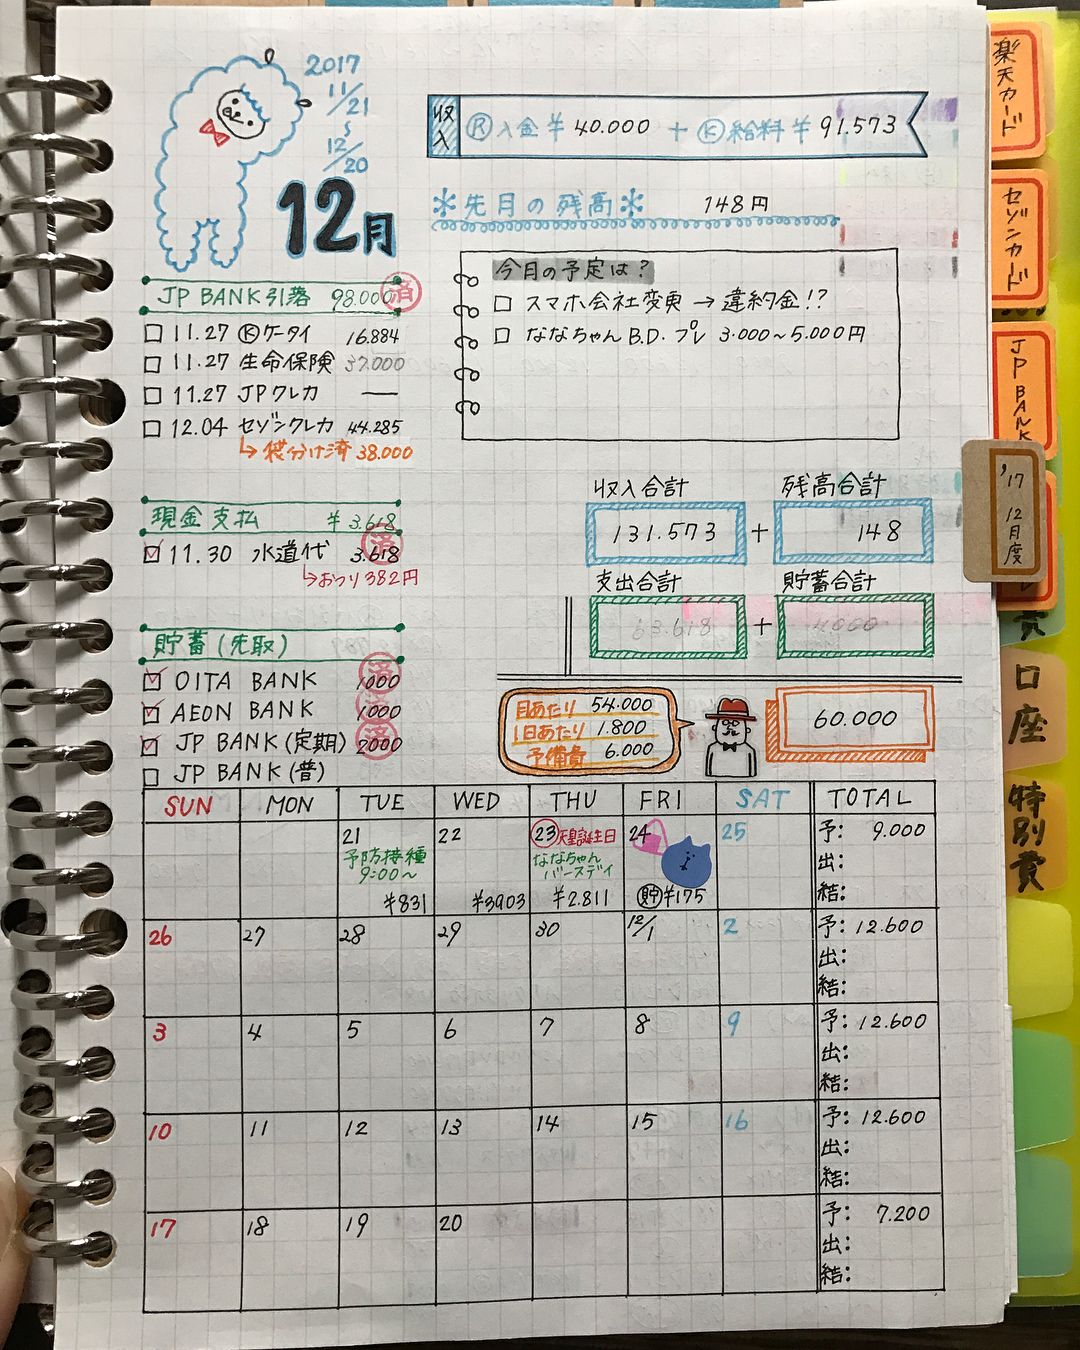 2017
11/21
12/20
12月
収入 Ⓡ入金 ¥40.000 + Ⓚ給料 ¥91.573
*先月の残高* 148円
JP BANK引落 98.000 済
□ 11.27 Ⓚケータイ 16.884
□ 11.27 生命保険 37.000
□ 11.27 JPクレカ —
□ 12.04 セゾンクレカ 44.285
↳袋分け済 38.000
今月の予定は?
□ スマホ会社変更 → 違約金!?
□ ななちゃん B.D. プレ 3.000~5.000円
現金支払 ¥3.618
☑ 11.30 水道代 3.618 済
↳おつり382円
貯蓄(先取)
☑ OITA BANK 1000 済
☑ AEON BANK 1000 済
☑ JP BANK(定期) 2000 済
□ JP BANK(普)
収入合計 残高合計
131.573 + 148
支出合計 貯蓄合計
63.618 + 4.000
月あたり 54.000
1日あたり 1.800
予備費 6.000
60.000
SUN MON TUE WED THU FRI SAT TOTAL
21 22 23 天皇誕生日 24 25 予: 9.000
予防接種 ななちゃん 出:
9:00~ バースデイ
¥831 ¥3903 ¥2.811 貯¥175 結:
26 27 28 29 30 12/1 2 予: 12.600
出:
結:
3 4 5 6 7 8 9 予: 12.600
出:
結:
10 11 12 13 14 15 16 予: 12.600
出:
結:
17 18 19 20 予: 7.200
出:
結:
楽天カード
セゾンカード
JP BANK
'17 12月度
口座
特別費